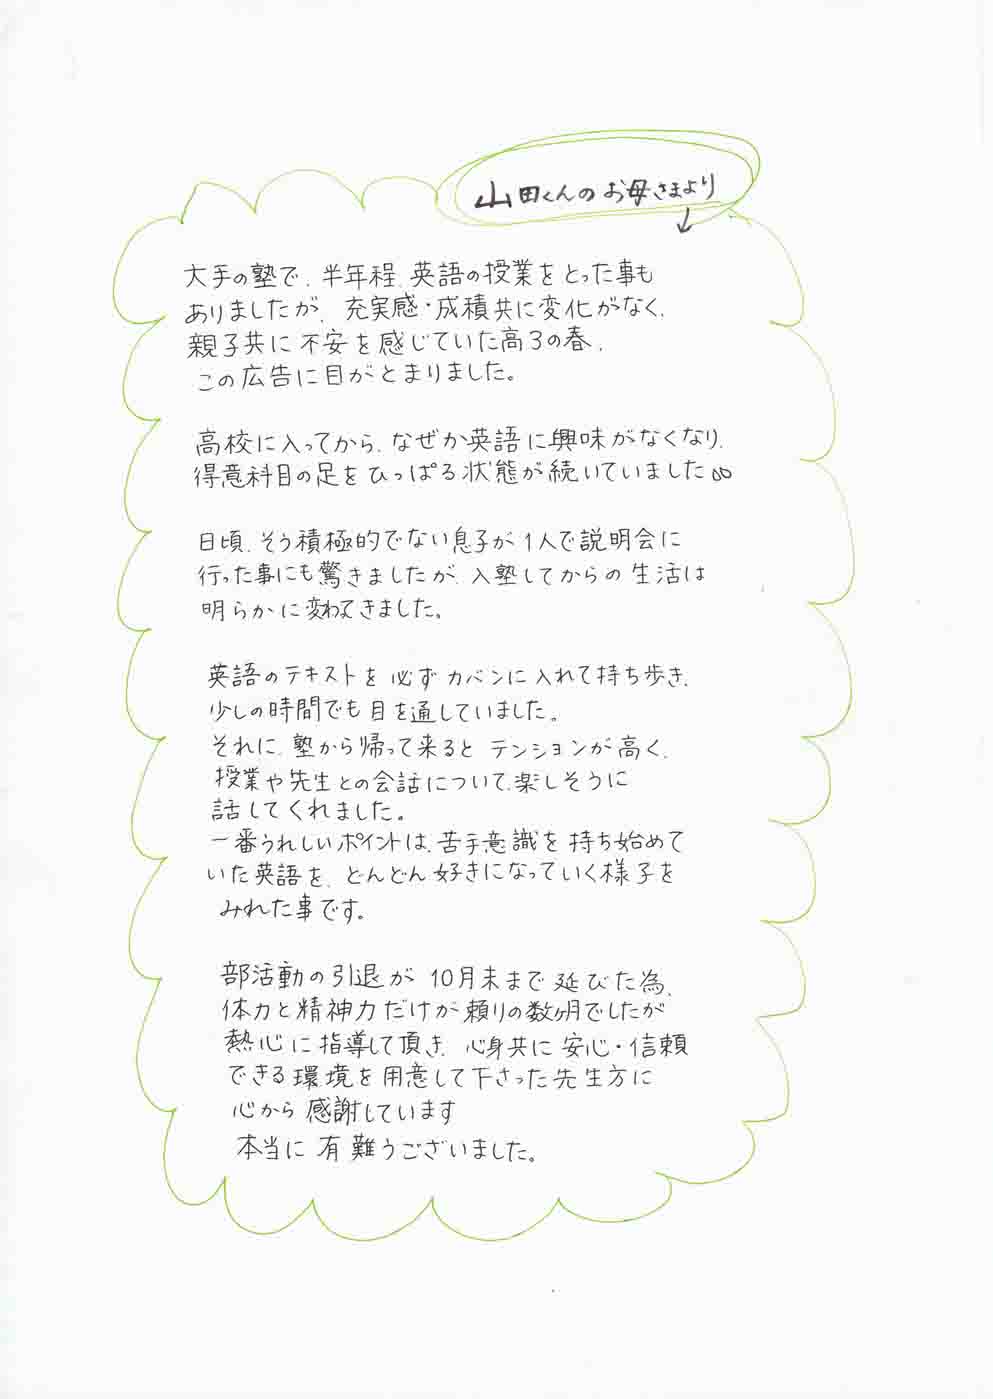 山田くんのお母さまより
大手の塾で、半年程、英語の授業をとった事も
ありましたが、充実感・成積共に変化がなく、
親子共に不安を感じていた高3の春、
この広告に目がとまりました。
高校に入ってから、なぜか英語に興味がなくなり、
得意科目の足をひっぱる状態が続いていました。。
日頃、そう積極的でない息子が1人で説明会に
行った事にも驚きましたが、入塾してからの生活は
明らかに変わてきました。
英語のテキストを必ずカバンに入れて持ち歩き、
少しの時間でも目を通していました。
それに、塾から帰って来るとテンションが高く、
授業や先生との会話について、楽しそうに
話してくれました。
一番うれしいポイントは、苦手意識を持ち始めて
いた英語を、どんどん好きになっていく様子を
みれた事です。
部活動の引退が10月末まで延びた為、
体力と精神力だけが頼りの数ヶ月でしたが
熱心に指導して頂き、心身共に安心・信頼
できる環境を用意して下さった先生方に
心から感謝しています
本当に有難うございました。